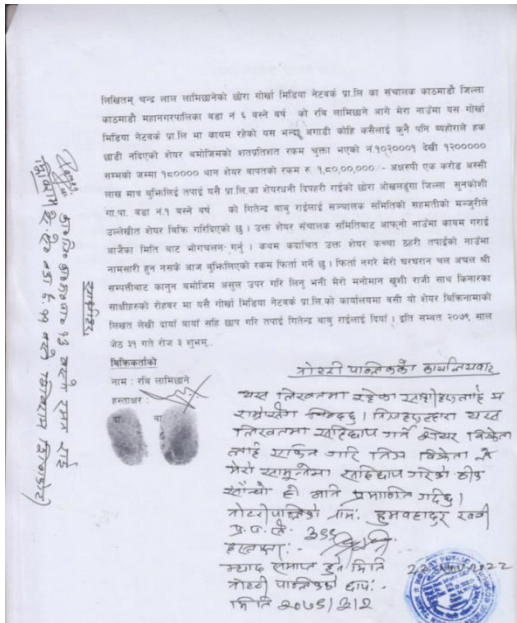 लिखितम् चन्द्र लाल लामिछानेको छोरा गोर्खा मिडिया नेटवर्क प्रा.लि का संचालक काठमाडौ जिल्ला
काठमाडौ महानगरपालिका वडा नं ६ बस्ने बर्ष को रवि लामिछाने आगे मेरा नाउँमा यस गोर्खा
मिडिया नेटवर्क प्रा.लि मा कायम रहेको यस भन्दा अगाडी कोहि कसैलाई कुनै पनि व्यहोराले हक
छाडी नदिएको शेयर बमोजिमको शतप्रतिशत रकम चुक्ता भएको नं.१०२०००१ देखी १२०००००
सम्मको जम्मा १८०००० थान शेयर वापतको रकम रु १,८०,००,०००/- अक्षरुपी एक करोड अस्सी
लाख मात्र बुझिलिई तपाई यस प्रा.लि.का शेयरधनी दिपहरी राईको छोरा ओखलढुंगा जिल्ला सुनकोशी
गा.पा. वडा नं.१ बस्ने बर्ष को गितेन्द्र बाबु राईलाई सञ्चालक समितिको सहमतीको मन्जुरीले
उल्लेखीत शेयर बिक्रि गरिदिएको छु । उक्त शेयर संचालक समितिबाट आफ्नो नाउँमा कायम गराई
आजैका मिति बाट भोगचलन गर्नु । कथम कदाचित उक्त शेयर कच्चा ठहरी तपाईको नाउँमा
नामसारी हुन नसके आज बुझिलिएको रकम फिर्ता गर्ने छु । फिर्ता नगरे मेरो घरघराना चल अचल श्री
सम्पत्तीबाट कानुन बमोजिम असुल उपर गरि लिनु भनी मेरो मनोमान खुशी राजी साथ किनारका
साक्षीहरुको रोहवर मा यसै गोर्खा मिडिया नेटवर्क प्रा.लि.को कार्यालयमा बसी यो शेयर बिक्रिनामाको
लिखत लेखी दायाँ बायाँ सहि छाप गरि तपाई गितेन्द्र बाबु राईलाई दियाँ । इति सम्वत २०७९ साल
जेठ ३१ गते रोज ३ शुभम्..
बिक्रिकर्ताको
नाम : रवि लामिछाने
हस्ताक्षर :
दा. बा
साक्षीहरु
नोटरी पब्लिकको कार्यालयबाट
यस लिखतमा रहेका साक्षीहरुलाई म
लिखतमा सहिछाप गर्ने शेयर बिक्रेता
लाई सनाखत गरि निज बिक्रेता ले
मेरो सामुन्नेमा सहिछाप गरेको ठीक
साँचो हो भनि प्रमाणित गर्दछु।
नोटरी पब्लिकको नाम:
प्र.प.नं.
हस्ताक्षर:-
म्याद समाप्त हुने मिति
नोटरी पब्लिकको छाप:-
मिति